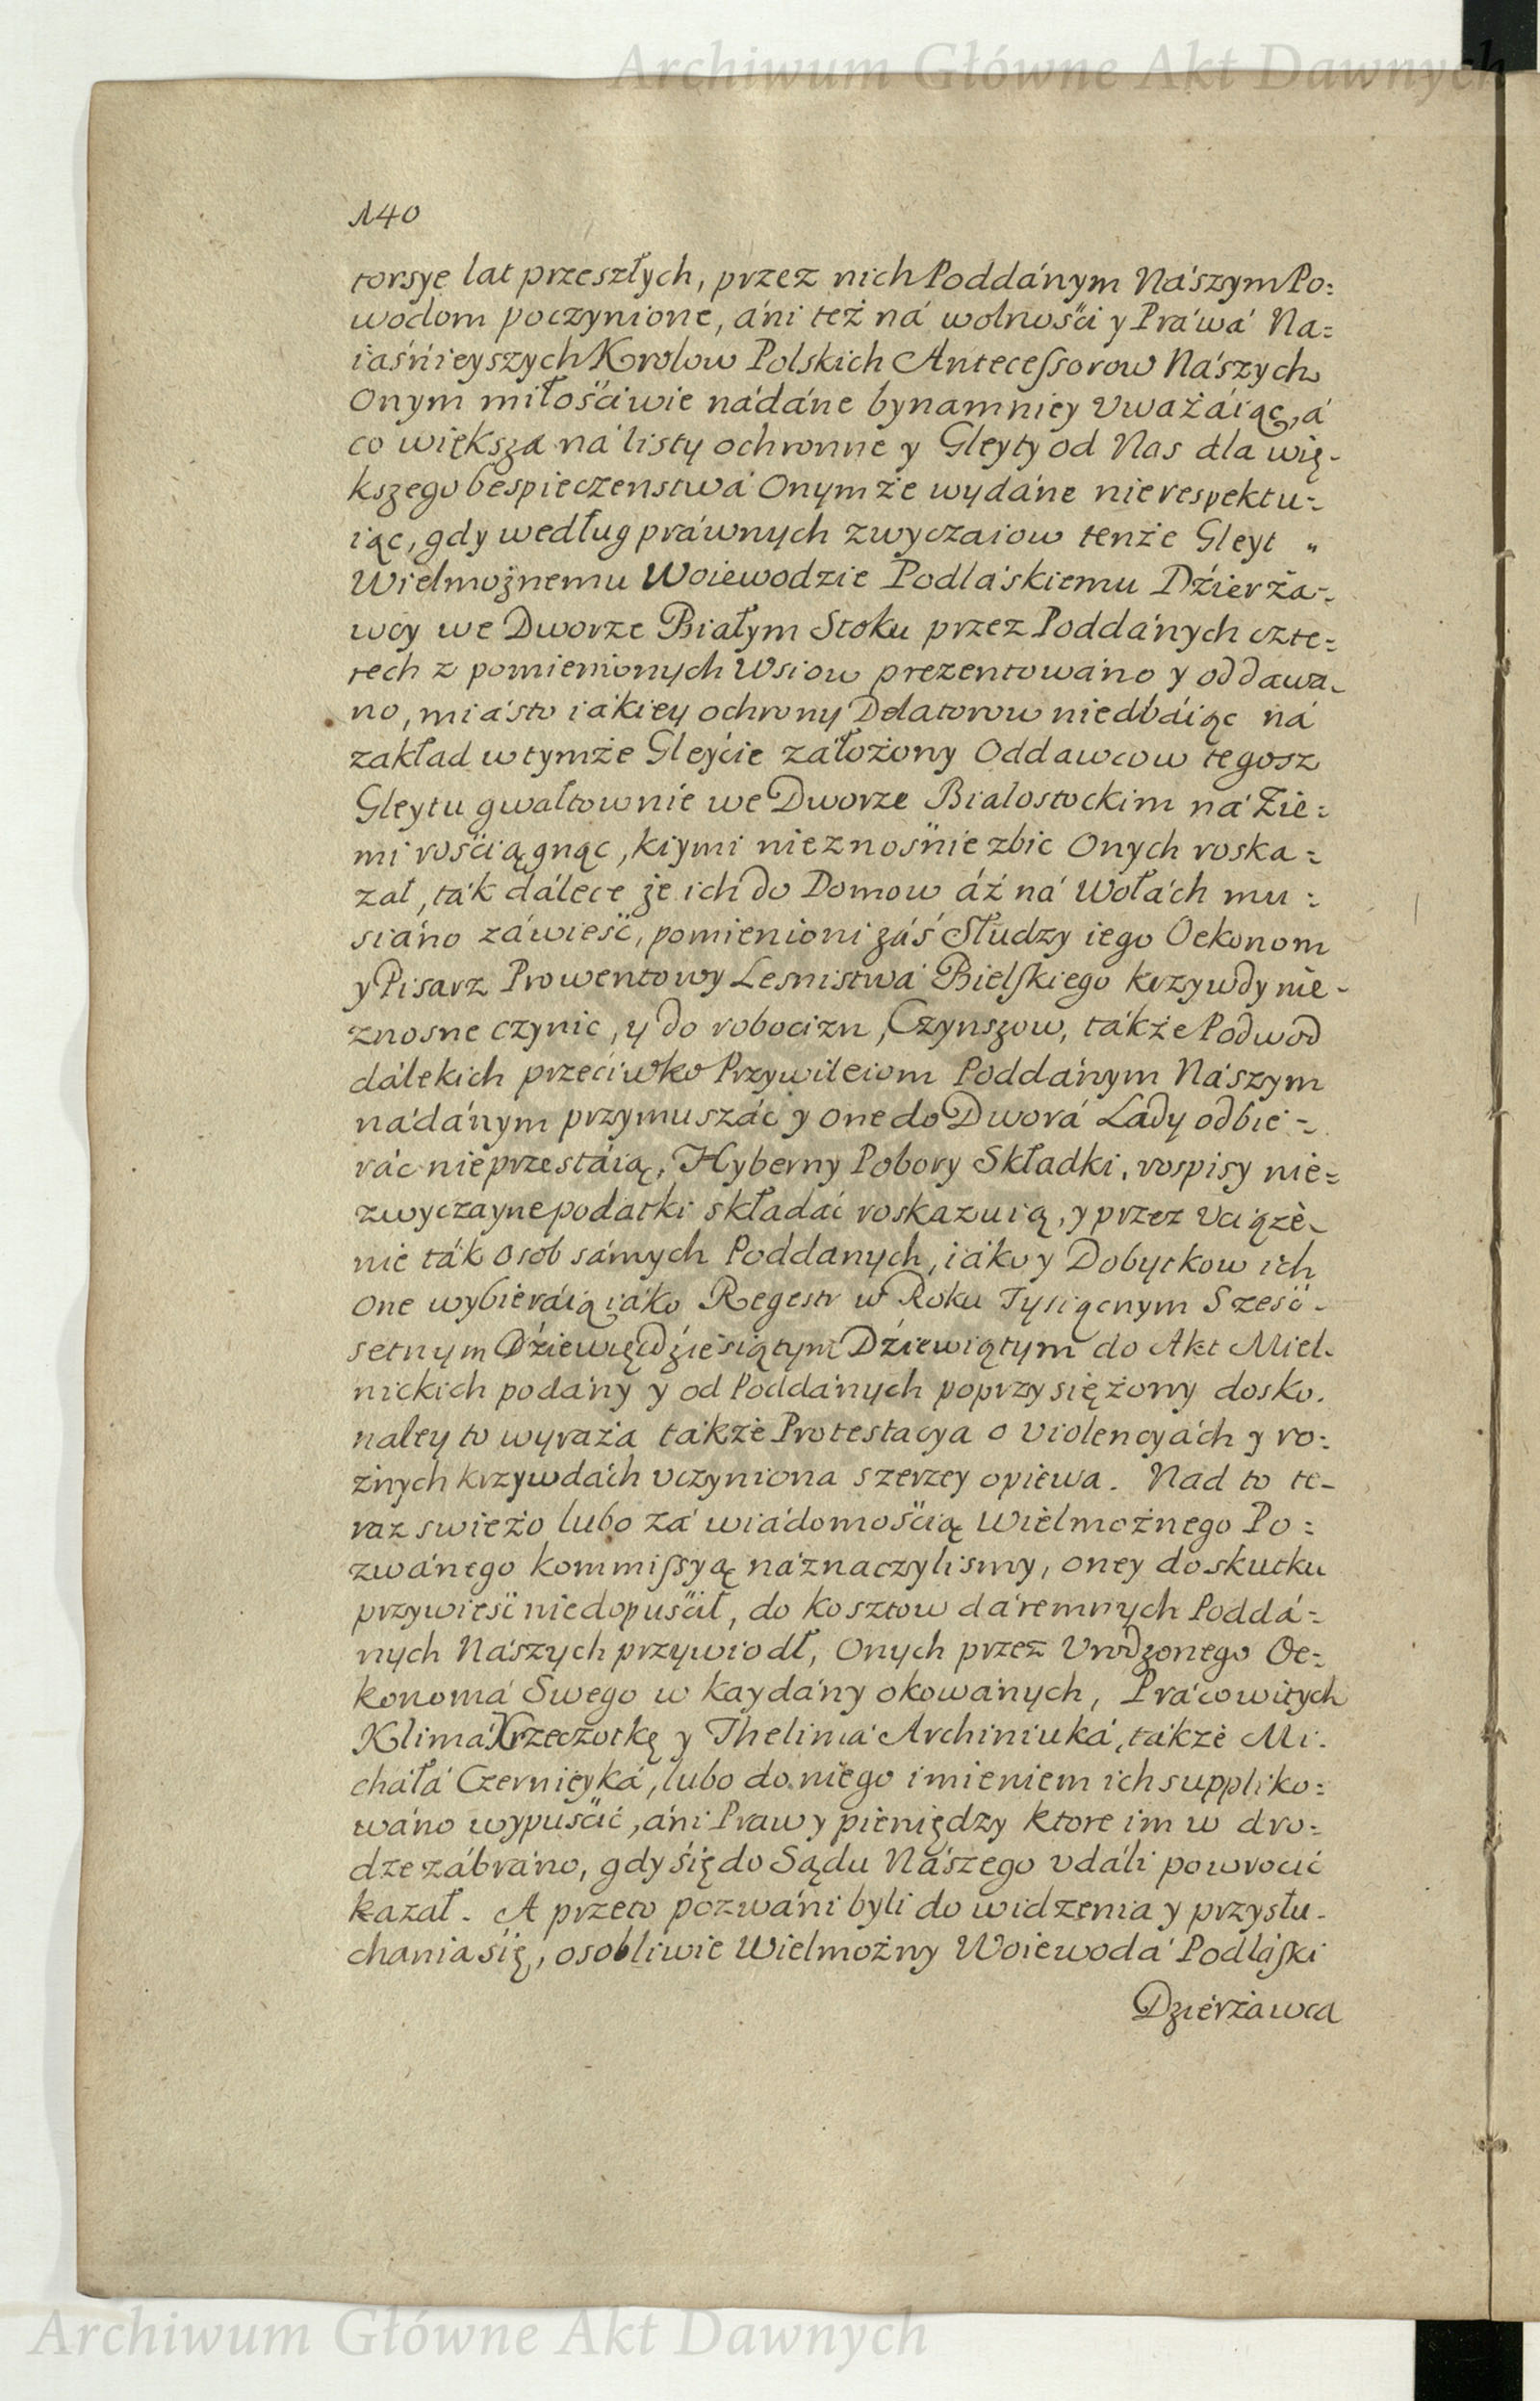 Archiwum Główne Akt Dawnych
140
torsye lat przeszłych, przez nich Poddánym Nászym Po=
wodom poczynione, áni też ná wolnośći y Práwá Na=
iaśńieyszych Krolow Polskich Antecessorow Nászych
Onym miłośćiwie nádáne bynamniey vważáiąc, á
co większa ná listy ochronne y Gleyty od Nas dla wię-
kszego bespieczenstwá Onymże wydáne nierespektu=
iąc, gdy według práwnych zwyczaiow tenże Gleyt "
Wielmożnemu Woiewodzie Podláskiemu Dźierża-
wcy we Dworze Białym Stoku przez Poddánych czte=
rech z pomienionych Wsiow prezentowáno y oddawa-
no, miásto iákiey ochrony Delatorow niedbáiąc ná
zakład w tymże Gleyćie záłożony Oddawcow tegosz
Gleytu gwałtownie we Dworze Bialostockim ná Zie=
mi rośćiągnąc, kiymi nieznośnie zbic Onych roska=
zał, ták dálece że ich do Domow áż ná Wołách mu=
siáno záwieść, pomienioni záś Słudzy iego Oekonom
y Pisarz Prowentowy Lesnistwá Bielskiego krzywdy nie-
znosne czynic, y do robocizn, Czynszow, tákże Podwod
dálekich przećiwko Przywileiom Poddánym Nászym
nádánym przymuszác y one do Dworá Lady odbie-
rác nieprzestáią, Hyberny Pobory Składki, rospisy nie=
zwyczayne podatki składáć roskazuią, y przez vciąże-
nie ták osob sámych Poddanych, iáko y Dobytkow ich
one wybieráią iáko Regestr w Roku Tysiącnym Sześć-
setnym Dźiewięćdźieśiątym Dźiewiątym do Akt Miel-
nickich podány y od Poddánych poprzysiężony dosko-
naley to wyraża tákże Protestacya o violencyách y ro=
żnych krzywdách vczyniona szerzey opiewa. Nad to te-
raz swieżo lubo zá wiádomośćią Wielmożnego Po=
zwánego kommissyą náznaczylismy, oney do skutku
przywieść niedopuśćił, do kosztow dáremnych Poddá=
nych Nászych przywiodł, Onych przez Vrodzonego Oe=
konomá Swego w kaydány okowánych, Prácowitych
Klimá Krzeczotkę y Thelimá Archiniuká, tákże Mi-
cháłá Czernieyká, lubo do niego imieniem ich suppliko=
wáno wypuśćić, áni Prawy pieniędzy ktore im w dro=
dze zábráno, gdy śię do Sądu Nászego vdáli powroćić
kazał. A przeto pozwáni byli do widzenia y przysłu-
chania się, osobliwie Wielmożny Woiewodá Podláski
Dzierżawca
Archiwum Główne Akt Dawnych